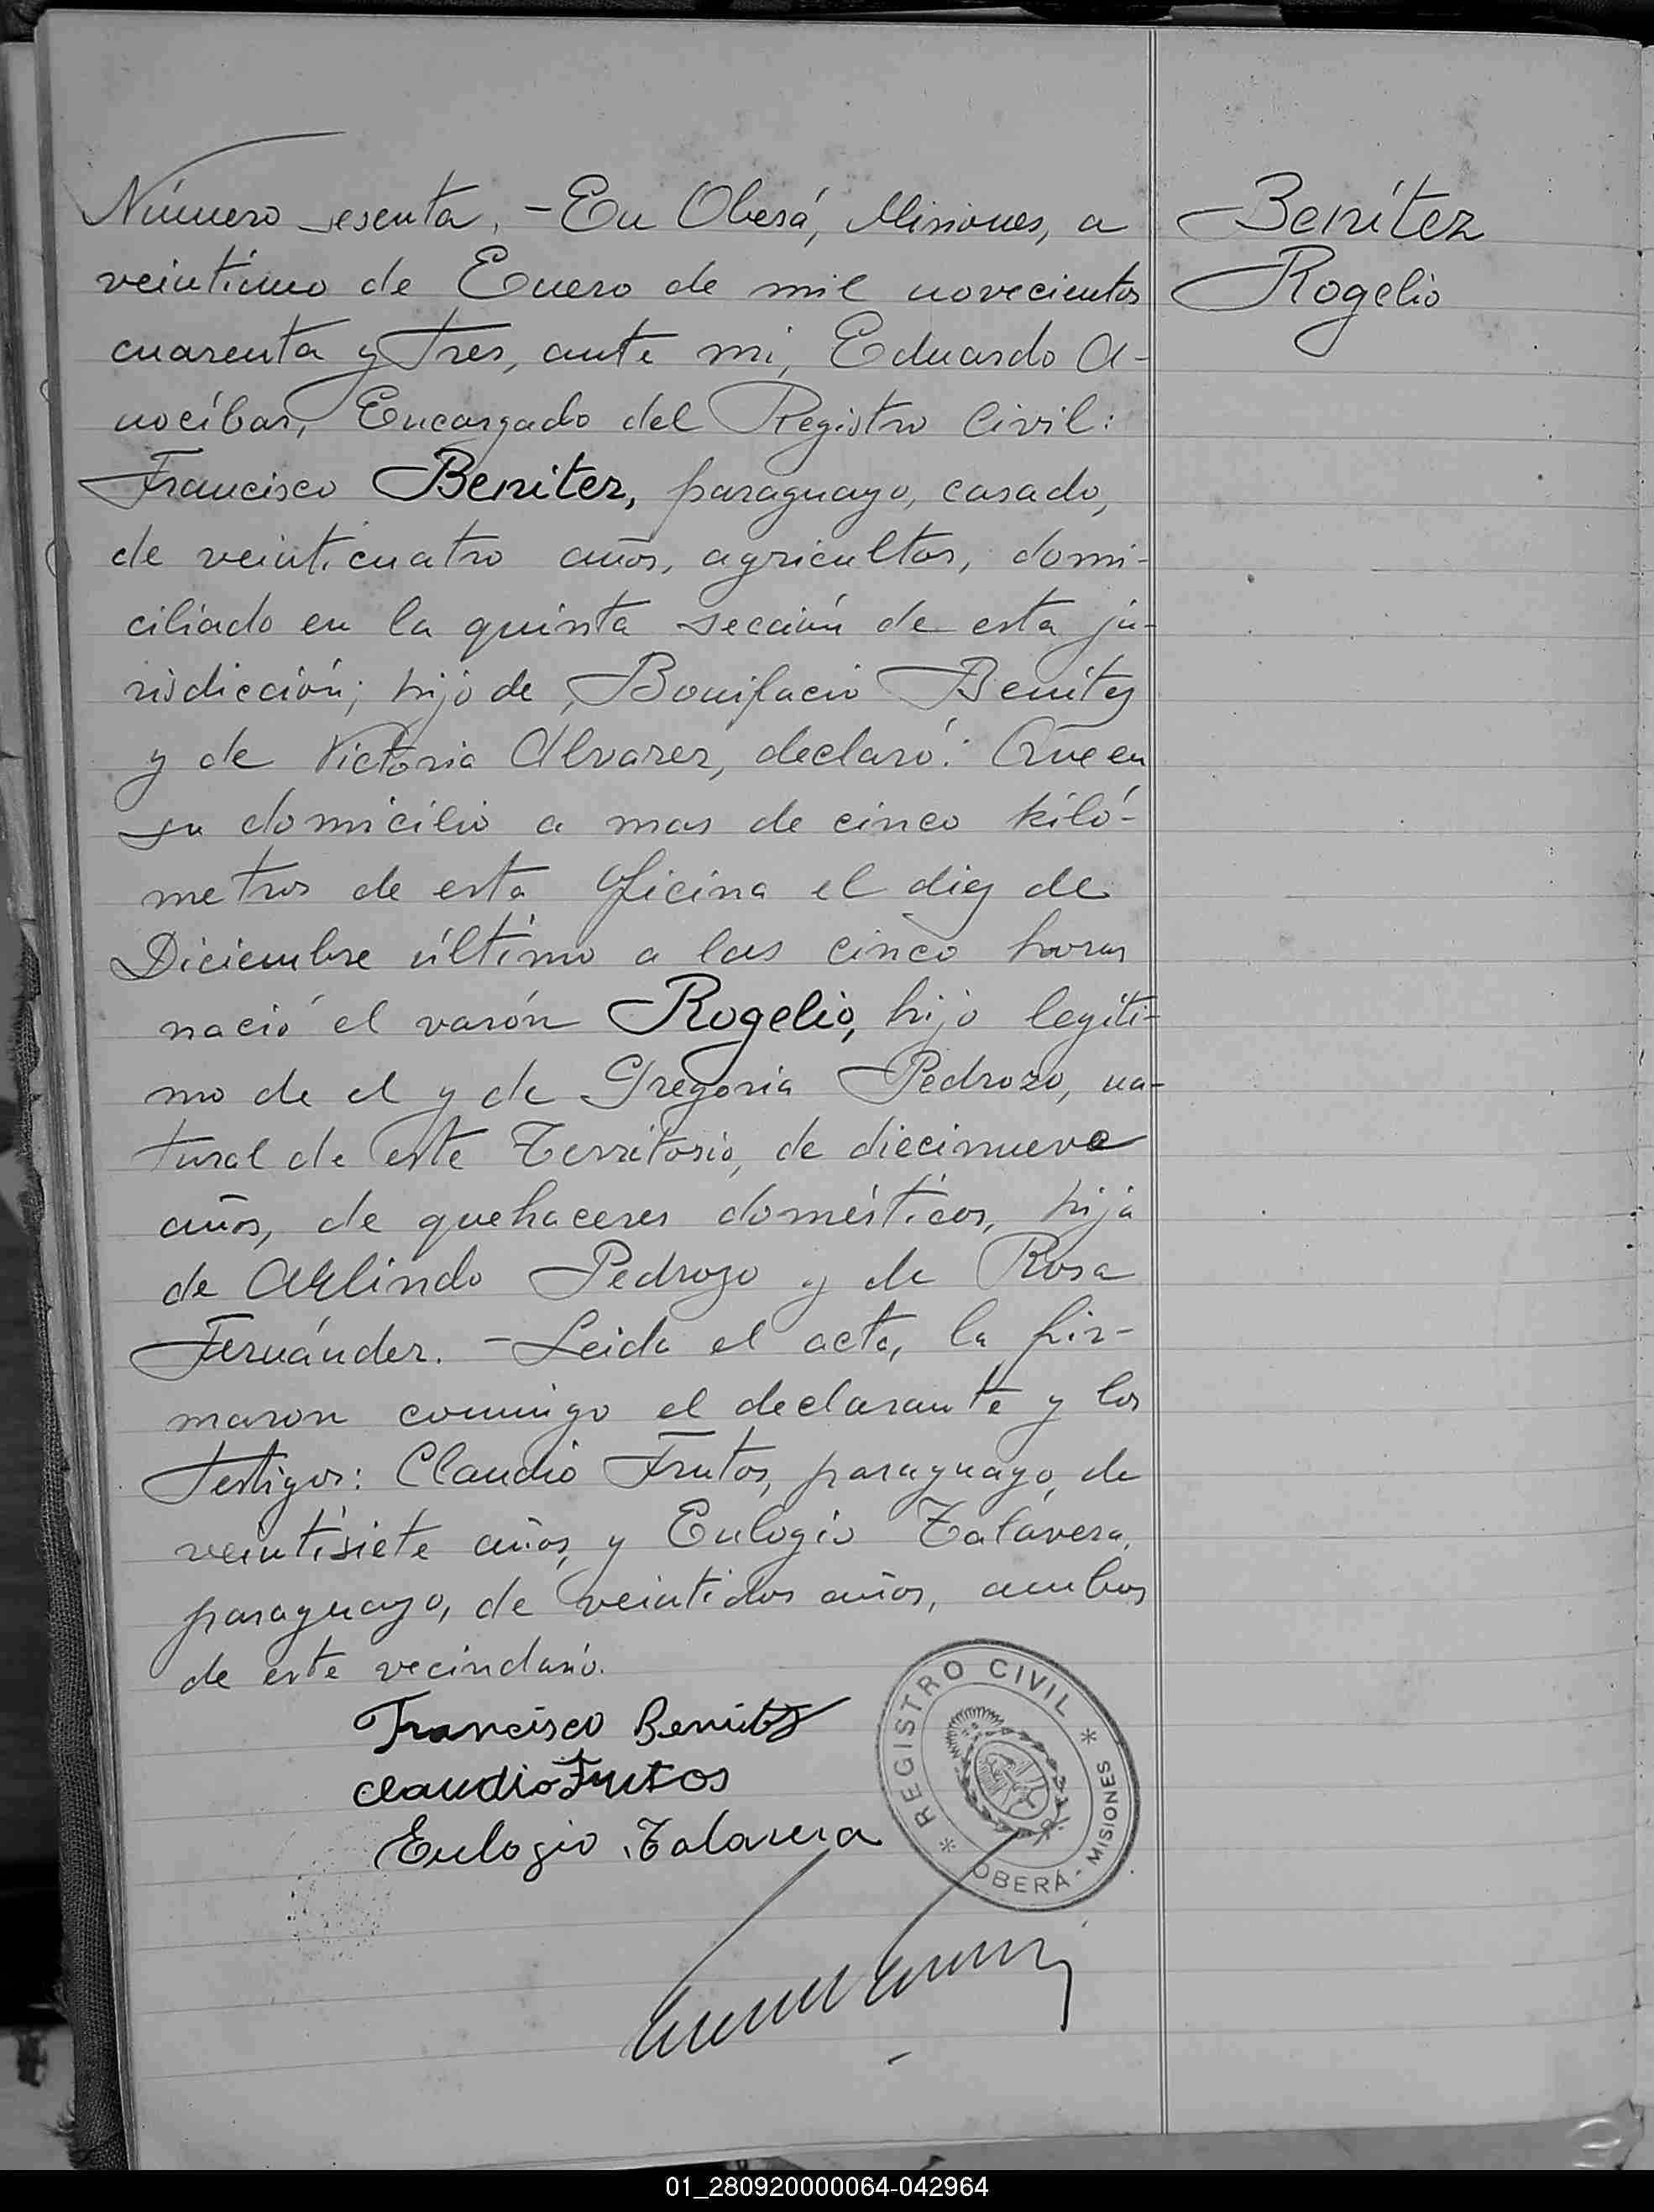 Número sesenta. - En Oberá, Misiones, a
veintiuno de Enero de mil novecientos
cuarenta y tres, ante mi, Eduardo A-
nocíbar, Encargado del Registro Civil:
Francisco Benitez, paraguayo, casado,
de veinticuatro años, agricultor, domi-
ciliado en la quinta sección de esta ju-
risdicción; hijo de Bonifacio Benítez
y de Victoria Alvarez, declaró: Que en
su domicilio a mas de cinco kiló-
metros de esta Oficina el diez de
Diciembre último a las cinco horas
nació el varón Rogelio, hijo legíti-
mo de el y de Gregoria Pedrozo, na-
tural de este Territorio, de diecinueve
años, de quehaceres domésticos, hija
de Arlindo Pedrozo y de Rosa
Fernández. - Leida el acta, la fir-
maron conmigo el declarante y los
testigos: Claudio Frutos, paraguayo, de
veintisiete años, y Eulogio Talavera,
paraguayo, de veintidos años, ambos
de este vecindario.
Francisco Benitez
Claudio Frutos
Eulogio Talavera
Benítez
Rogelio
* REGISTRO CIVIL *
OBERÁ - MISIONES
01_280920000064-042964